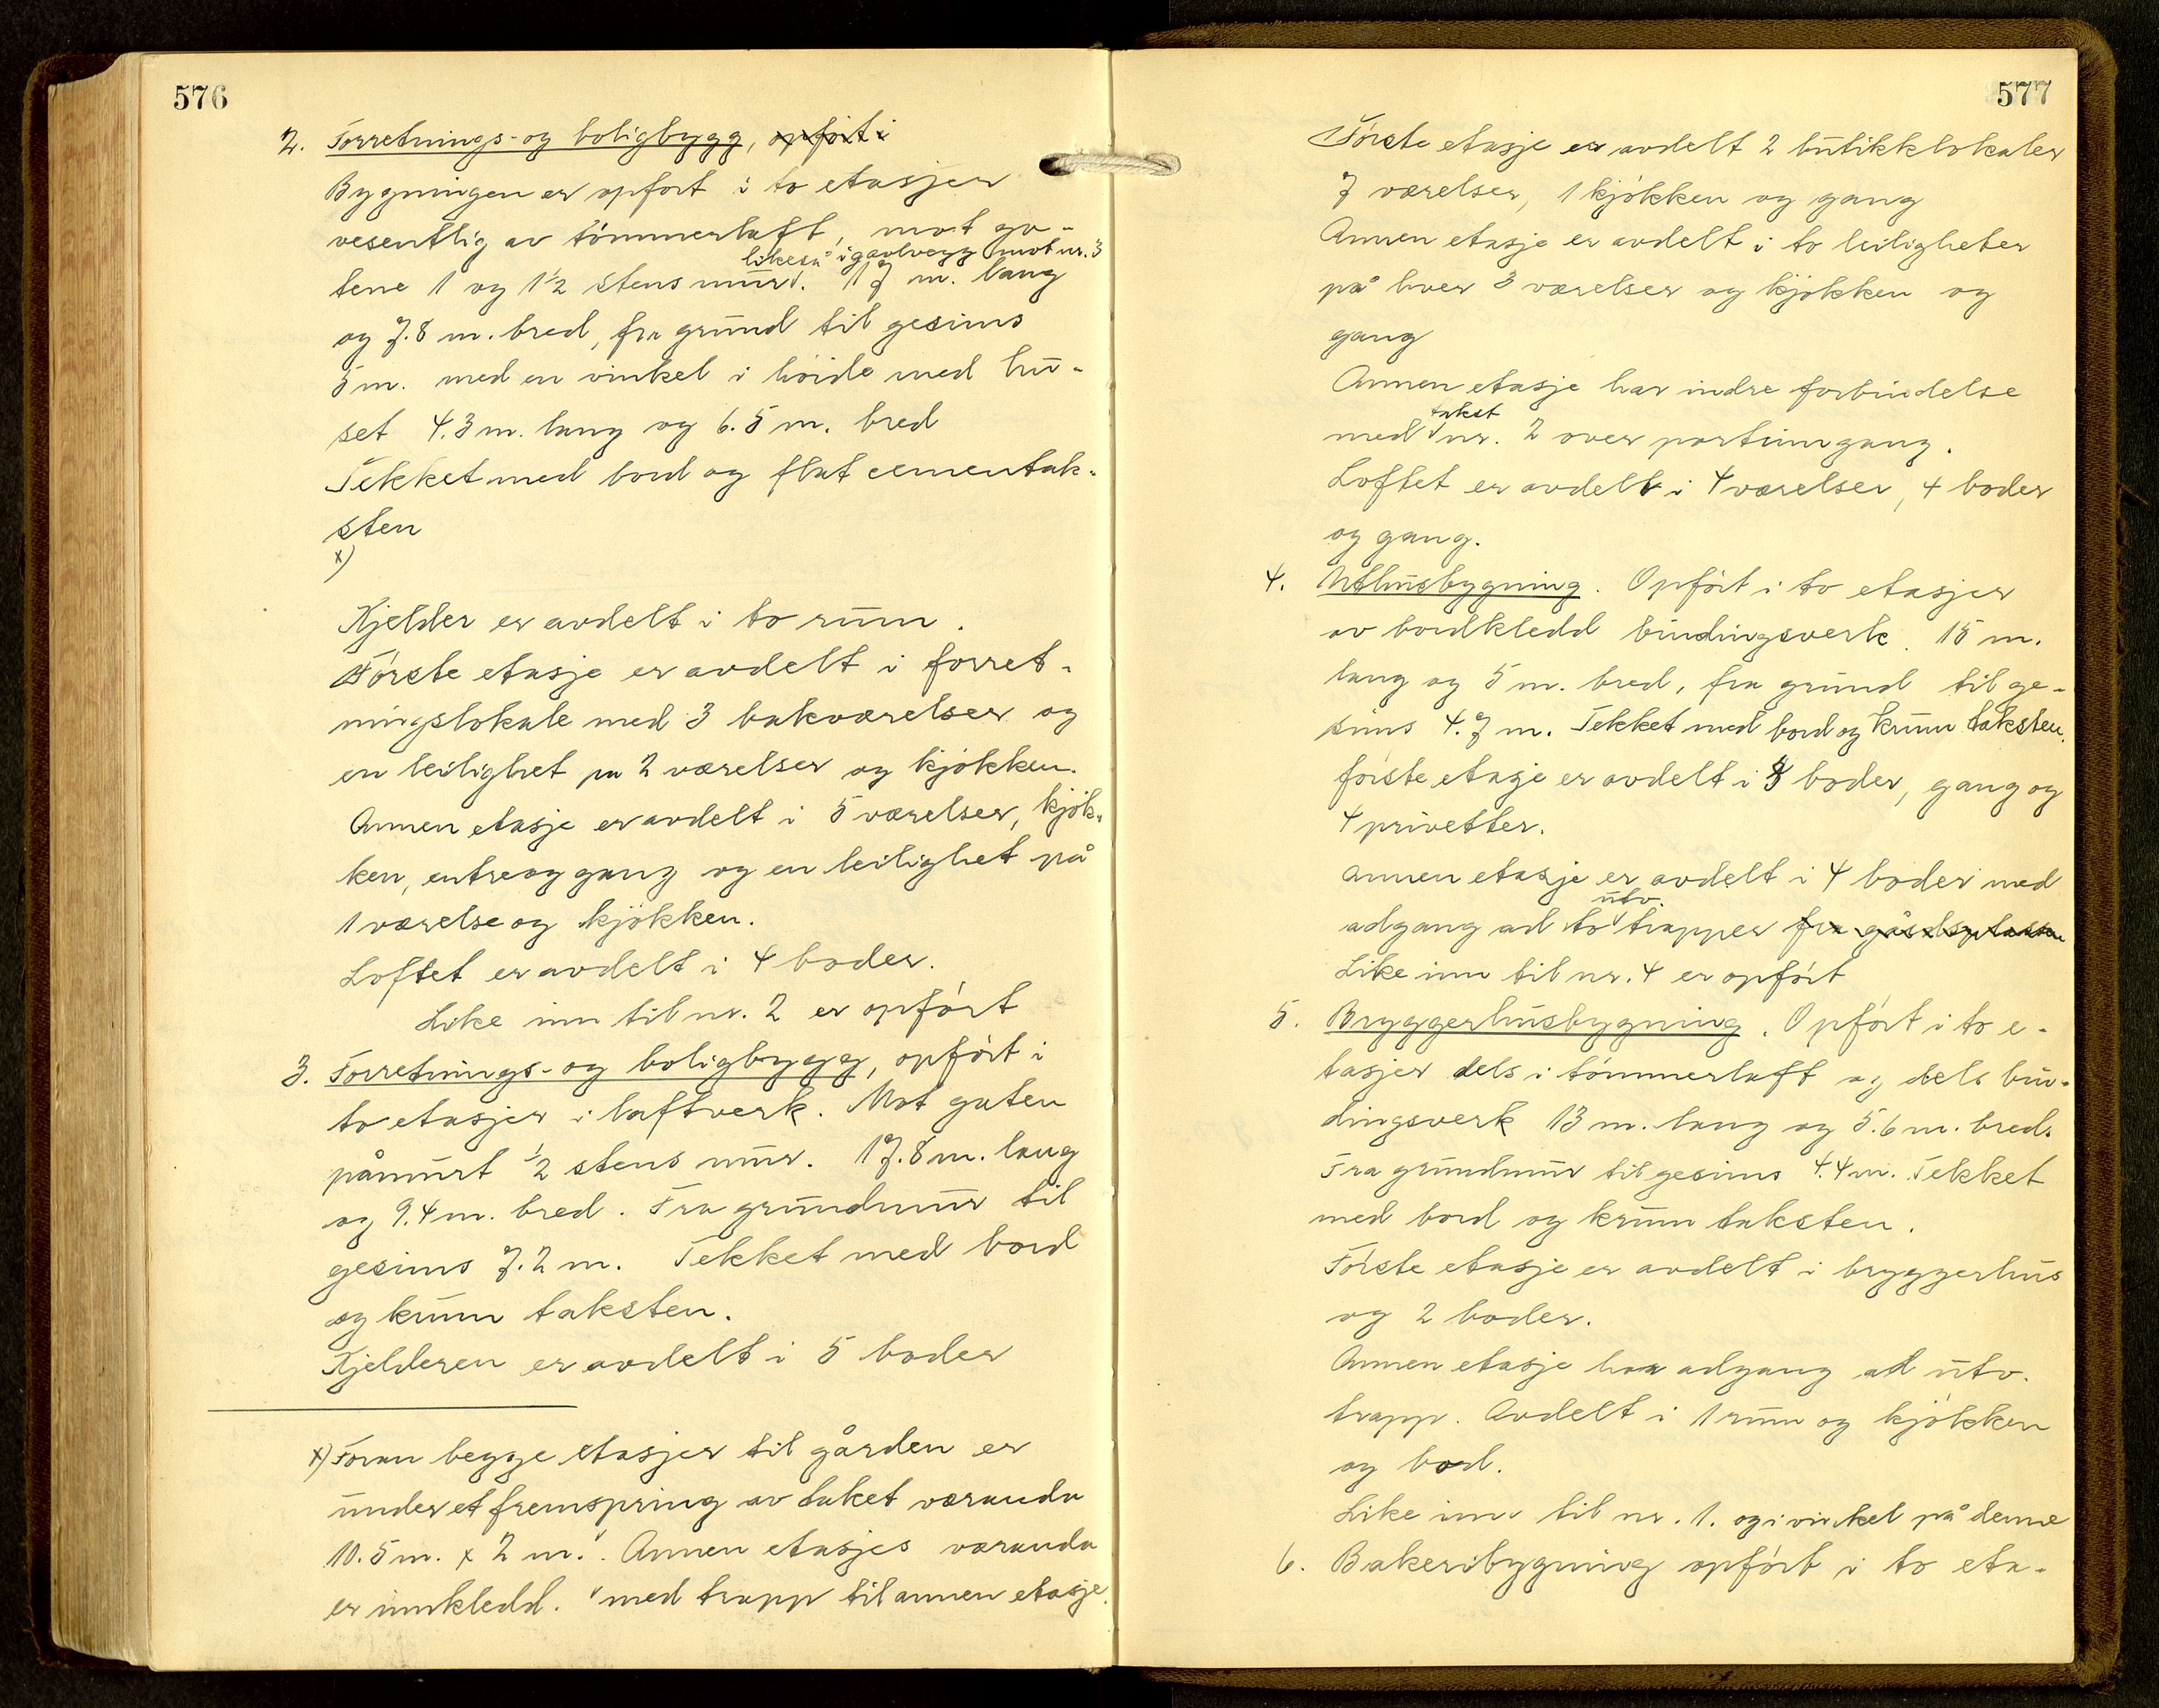 576
2. Forretnings- og boligbygg, opført i
Bygningen er opført i to etasjer
vesentlig av tømmerlaft, mot ga-
likeså i gavlvegg mot nr. 3
tene 1 og 1½ stens mur. 17 m. lang
og 7.8 m. bred, fra grund til gesims
5 m. med en vinkel i høide med hu-
set 4.3 m. lang og 6.5 m. bred
Tekket med bord og flat cementtak-
sten
x)
Kjelder er avdelt i to rum.
Første etasje er avdelt i forret-
ningslokale med 3 bakværelser og
en leilighet på 2 værelser og kjøkken.
Annen etasje er avdelt i 5 værelser, kjøk-
ken, entre og gang og en leilighet på
1 værelse og kjøkken.
Loftet er avdelt i 4 boder.
Like inn til nr. 2 er opført
3. Forretnings- og boligbygg, opført i
to etasjer i laftverk. Mot gaten
påmurt ½ stens mur. 17.8 m. lang
og 9.4 m. bred. Fra grundmur til
gesims 7.2 m. Tekket med bord
og krum taksten.
Kjelderen er avdelt i 5 boder
x) Foran begge etasjer til gården er
under et fremspring av taket veranda
10.5 m. x 2 m.v. Annen etasjes veranda
er innkledd. v med trapp til annen etasje.
577
Første etasje er avdelt 2 butikklokaler
7 værelser, 1 kjøkken og gang
Annen etasje er avdelt i to leiligheter
på hver 3 værelser og kjøkken og
gang
Annen etasje har indre forbindelse
takst
med nr. 2 over portrumgang.
Loftet er avdelt i 4 værelser, 4 boder
og gang.
4. Uthusbygning. Opført i to etasjer
av bordkledd bindingsverk. 15 m.
lang og 5 m. bred, fra grund til ge-
sims 4.7 m. Tekket med bord og krum taksten.
første etasje er avdelt i 8 boder, gang og
4 privetter.
annen etasje er avdelt i 4 boder med
utv.
adgang ad to trapper fra gårdsplassen
Like inn til nr. 4 er opført
5. Bryggerhusbygning. Opført i to e-
tasjer dels i tømmerlaft og dels bin-
dingsverk 13 m. lang og 5.6 m. bred.
Fra grundmur til gesims 4.4 m. Tekket
med bord og krum taksten.
Første etasje er avdelt i bryggerhus
og 2 boder.
Annen etasje har adgang ad utv.
trapp. Avdelt i 1 rum og kjøkken
og bod.
Like inn til nr. 1. og i vinkel på denne
6. Bakeribygning opført i to eta-